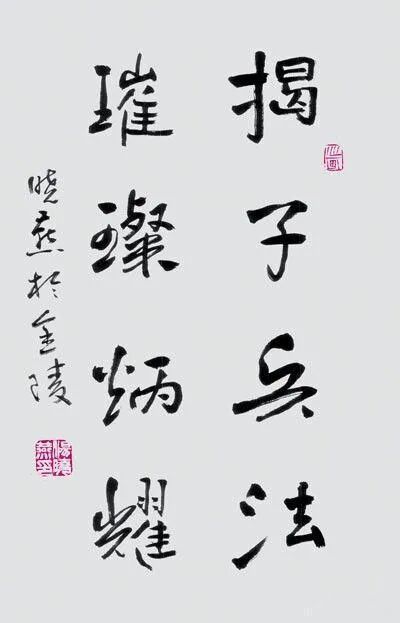 揭子兵法
璀璨炳耀
晓燕于金陵